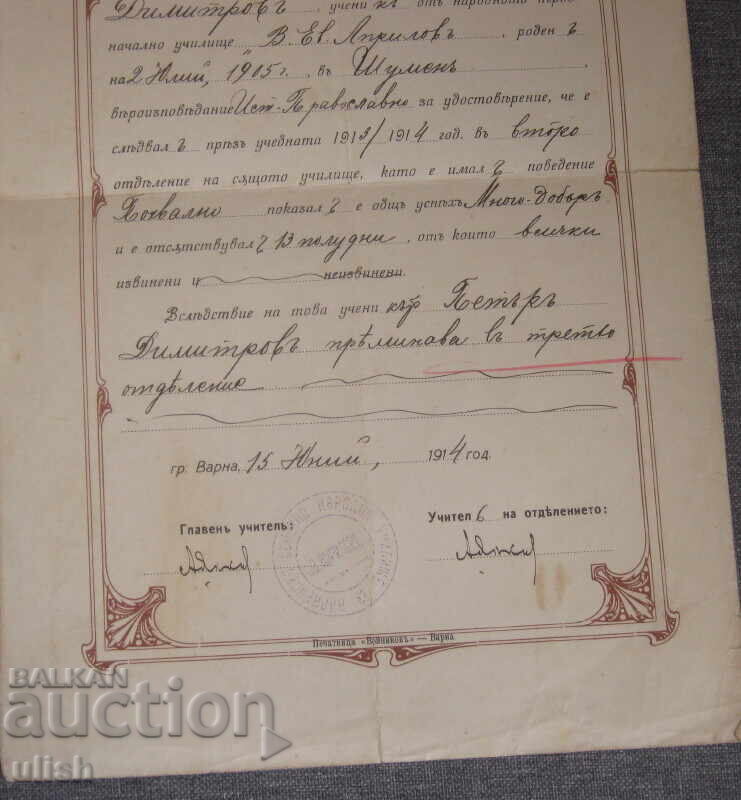 Димитровъ, учени къ отъ народното първо-
начално училище „В. Ев. Априловъ, роден ъ
на 2 Юлий, 1905 г. въ Шуменъ
вѣроизповѣдание Ист-Православно за удостовѣрение, че е
слѣдвал ъ прѣзъ учебната 1913/1914 год. въ второ
отдѣление на сѫщото училище, като е имал ъ поведение
Похвално показал ъ е общъ успѣхъ Много-добъръ
и е отсѫтствувал ъ 13 полудни, отъ които всички
извинени и неизвинени.
Вслѣдствие на това учени кътъ Петъръ
Димитровъ прѣминава въ третьо
отдѣление
гр. Варна, 15 Юний, 1914 год.
Главенъ учитель:
Учител ь на отдѣлението:
Печатница «Войниковъ» — Варна
BALKAN
auction
ulish